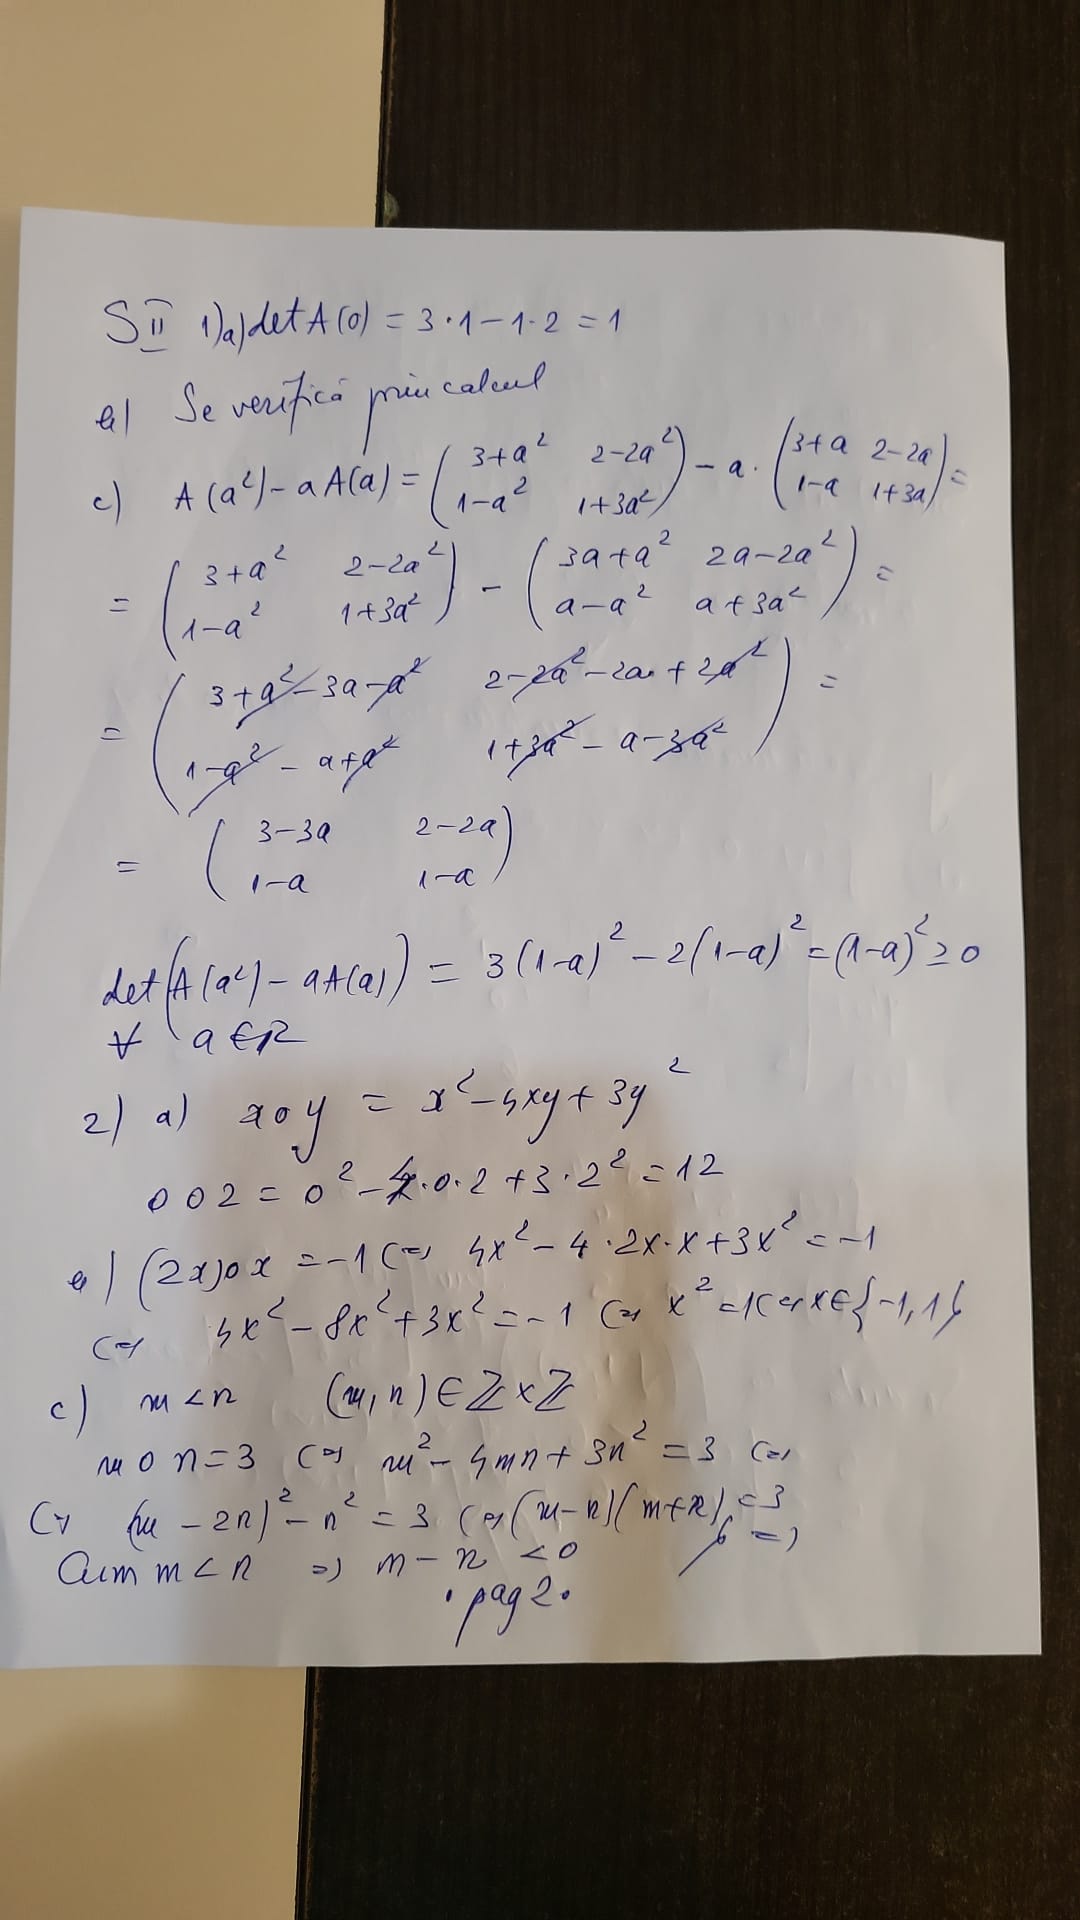 S II 1) a) det A(0) = 3·1 – 1·2 = 1
b) Se verifică prin calcul
c) A(a²) – a A(a) = ( 3+a² 2–2a² ; 1–a² 1+3a² ) – a· ( 3+a 2–2a ; 1–a 1+3a ) =
= ( 3+a² 2–2a² ; 1–a² 1+3a² ) – ( 3a+a² 2a–2a² ; a–a² a+3a² ) =
= ( 3+a²–3a–a² 2–2a²–2a+2a² ; 1–a²–a+a² 1+3a²–a–3a² ) =
= ( 3–3a 2–2a ; 1–a 1–a )
det (A(a²) – aA(a)) = 3(1–a)² – 2(1–a)² = (1–a)² ≥ 0
∀ a ∈ R
2) a) x∘y = x² – 4xy + 3y²
0∘2 = 0² – 4·0·2 + 3·2² = 12
b) (2x)∘x = –1 ⇔ 4x² – 4·2x·x + 3x² = –1
⇔ 4x² – 8x² + 3x² = –1 ⇔ x² = 1 ⇔ x∈{–1,1}
c) m < n (m, n) ∈ ℤ×ℤ
m∘n = 3 ⇔ m² – 4mn + 3n² = 3 ⇔
⇔ (m – 2n)² – n² = 3 ⇔ (m–n)(m+n) = 3
Cum m < n ⇒ m – n < 0 ⇒
· pag 2 ·